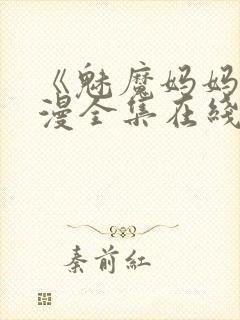 《魅魔妈妈
漫全集在线
秦前红